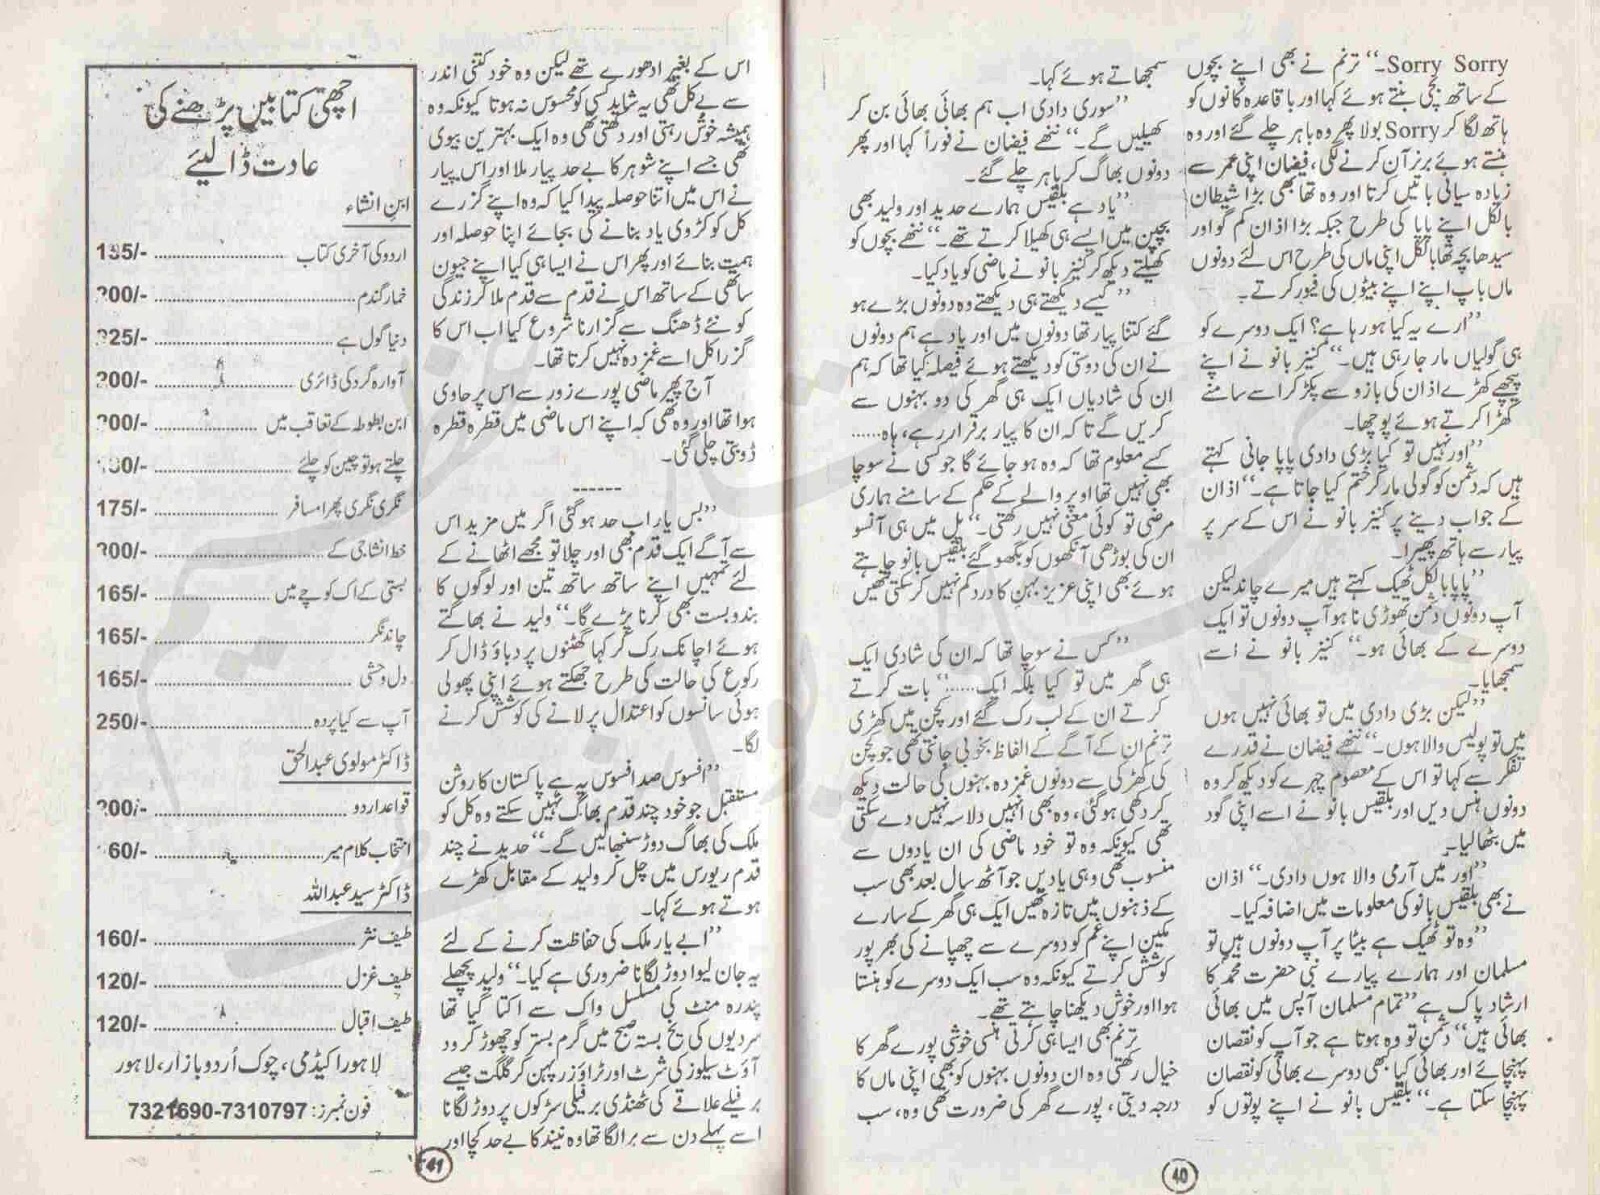 Sorry Sorry۔‘‘ ترنم نے بھی اپنے بچوں
کے ساتھ بچی بنتے ہوئے کہا اور باقاعدہ کانوں کو
ہاتھ لگا کر Sorry بولا پھر وہ باہر چلے گئے اور وہ
ہنستے ہوئے برنر آن کرنے لگی، فیضان اپنی عمر سے
زیادہ سیانی باتیں کرتا اور وہ تھا بھی بڑا شیطان
بالکل اپنے پاپا کی طرح جبکہ بڑا اذان کم گو اور
سیدھا بچہ تھا بالکل اپنی ماں کی طرح اس لئے دونوں
ماں باپ اپنے اپنے بیٹوں کی فیور کرتے۔
’’ارے یہ کیا ہو رہا ہے؟ ایک دوسرے کو
ہی گولیاں مار جا رہی ہیں۔‘‘ کنیز بانو نے اپنے
پیچھے کھڑے اذان کی بازو سے پکڑ کر اسے سامنے
کھڑا کرتے ہوئے پوچھا۔
’’اور نہیں تو کیا بڑی دادی پاپا جانی کہتے
ہیں کہ دشمن کو گولی مار کر ختم کیا جاتا ہے۔‘‘ اذان
کے جواب دینے پر کنیز بانو نے اس کے سر پر
پیار سے ہاتھ پھیرا۔
’’پاپا بالکل ٹھیک کہتے ہیں میرے چاند لیکن
آپ دونوں دشمن تھوڑی نا ہو آپ دونوں تو ایک
دوسرے کے بھائی ہو۔‘‘ کنیز بانو نے اسے
سمجھایا۔
’’لیکن بڑی دادی میں تو بھائی نہیں ہوں
میں تو پولیس والا ہوں۔‘‘ ننھے فیضان نے قدرے
تفکر سے کہا تو اس کے معصوم چہرے کو دیکھ کر وہ
دونوں ہنس دیں اور بلقیس بانو نے اسے اپنی گود
میں بٹھا لیا۔
’’اور میں آرمی والا ہوں دادی۔‘‘ اذان
نے بھی بلقیس بانو کی معلومات میں اضافہ کیا۔
’’وہ تو ٹھیک ہے بیٹا پر آپ دونوں ہیں تو
مسلمان اور ہمارے پیارے نبی حضرت محمدؐ کا
ارشاد پاک ہے ’’تمام مسلمان آپس میں بھائی
بھائی ہیں‘‘ دشمن تو وہ ہوتا ہے جو آپ کو نقصان
پہنچائے اور بھائی کیا بھی دوسرے بھائی کو نقصان
پہنچا سکتا ہے۔‘‘ بلقیس بانو نے اپنے پوتوں کو
سمجھاتے ہوئے کہا۔
’’سوری دادی اب ہم بھائی بھائی بن کر
کھیلیں گے۔‘‘ ننھے فیضان نے فوراً کہا اور پھر
دونوں بھاگ کر باہر چلے گئے۔
’’یاد ہے بلقیس ہمارے حدید اور ولید بھی
بچپن میں ایسے ہی کھیلا کرتے تھے۔‘‘ ننھے بچوں کو
کھیلتے دیکھ کر کنیز بانو نے ماضی کو یاد کیا۔
’’کیسے دیکھتے ہی دیکھتے وہ دونوں بڑے ہو
گئے کتنا پیار تھا دونوں میں اور یاد ہے ہم دونوں
نے ان کی دوستی کو دیکھتے ہوئے فیصلہ کیا تھا کہ ہم
ان کی شادیاں ایک ہی گھر کی دو بہنوں سے
کریں گے تا کہ ان کا پیار برقرار رہے، ہاہ......
کسے معلوم تھا کہ وہ ہو جائے گا جو کسی نے سوچا
بھی نہیں تھا اوپر والے کے حکم کے سامنے ہماری
مرضی تو کوئی معنی نہیں رکھتی۔‘‘ پل میں ہی آنسو
ان کی بوڑھی آنکھوں کو بھگو گئے بلقیس بانو چاہتے
ہوئے بھی اپنی عزیز بہن کا درد کم نہیں کر سکتی تھیں
’’کس نے سوچا تھا کہ ان کی شادی ایک
ہی گھر میں تو کیا بلکہ ایک.....‘‘ بات کرتے
کرتے ان کے لب رک گئے اور کچن میں کھڑی
ترنم ان کے آگے کے الفاظ بخوبی جانتی تھی جو کچن
کی کھڑکی سے دونوں غمزدہ بہنوں کی حالت دیکھ
کر دکھی ہو گئی، وہ بھی انہیں دلاسہ نہیں دے سکتی
تھی کیونکہ وہ تو خود ماضی کی ان یادوں سے
منسوب تھی وہی یادیں جو آٹھ سال بعد بھی سب
کے ذہنوں میں تازہ تھیں ایک ہی گھر کے سارے
مکین اپنے غم کو دوسرے سے چھپانے کی بھرپور
کوشش کرتے کیونکہ وہ سب ایک دوسرے کو ہنستا
ہوا اور خوش دیکھنا چاہتے تھے۔
ترنم بھی ایسا ہی کرتی ہنسی خوشی پورے گھر کا
خیال رکھتی وہ ان دونوں بہنوں کو بھی اپنی ماں کا
درجہ دیتی، پورے گھر کی ضرورت تھی وہ، سب
40
اس کے بغیر ادھورے تھے لیکن وہ خود کتنی اندر
سے بے کل تھی یہ شاید کسی کو محسوس نہ ہوتا کیونکہ وہ
ہمیشہ خوش رہتی اور دکھتی تھی وہ ایک بہترین بیوی
تھی جسے اپنے شوہر کا بے حد پیار ملا اور اس پیار
نے اس میں اتنا حوصلہ پیدا کیا کہ وہ اپنے گزرے
کل کو کڑوی یاد بنانے کی بجائے اپنا حوصلہ اور
ہمت بنائے اور پھر اس نے ایسا ہی کیا اپنے جیون
ساتھی کے ساتھ اس نے قدم سے قدم ملا کر زندگی
کو نئے ڈھنگ سے گزارنا شروع کیا اب اس کا
گزرا کل اسے غمزدہ نہیں کرتا تھا۔
آج پھر ماضی پورے زور سے اس پر حاوی
ہوا تھا اور وہ تھی کہ اپنے اس ماضی میں قطرہ قطرہ
ڈوبتی چلی گئی۔
------
’’بس یار اب حد ہو گئی اگر میں مزید اس
سے آگے ایک قدم بھی اور چلا تو مجھے اٹھانے کے
لئے تمہیں اپنے ساتھ ساتھ تین اور لوگوں کا
بندوبست بھی کرنا پڑے گا۔‘‘ ولید نے بھاگتے
ہوئے اچانک رک کر کہا گھٹنوں پر دباؤ ڈال کر
رکوع کی حالت کی طرح جھکتے ہوئے اپنی پھولی
ہوئی سانسوں کو اعتدال پر لانے کی کوشش کرنے
لگا۔
’’افسوس صد افسوس یہ ہے پاکستان کا روشن
مستقبل جو خود چند قدم بھاگ نہیں سکتے وہ کل کو
ملک کی بھاگ دوڑ سنبھالیں گے۔‘‘ حدید نے چند
قدم ریورس میں چل کر ولید کے مقابل کھڑے
ہوتے ہوئے کہا۔
’’ابے یار ملک کی حفاظت کرنے کے لئے
یہ جان لیوا دوڑ لگانا ضروری ہے کیا۔‘‘ ولید پچھلے
پندرہ منٹ کی مسلسل واک سے اکتا گیا تھا
سردیوں کی یخ بستہ صبح میں گرم بستر کو چھوڑ کر ود
آؤٹ سلیوز کی شرٹ اور ٹراؤزر پہن کر گلگت جیسے
برفیلے علاقے کی ٹھنڈی برفیلی سڑکوں پر دوڑ لگانا
اسے پہلے دن سے برا لگا تھا وہ نیند کا بے حد کچا اور
41
اچھی کتابیں پڑھنے کی
عادت ڈالیئے
ابن انشاء
اردو کی آخری کتاب ........ 135/-
خمار گندم ........ 200/-
دنیا گول ہے ........ 225/-
آوارہ گرد کی ڈائری ........ 200/-
ابن بطوطہ کے تعاقب میں ........ 200/-
چلتے ہو تو چین کو چلئے ........
نگری نگری پھرا مسافر ........ 175/-
خط انشاجی کے ........ 200/-
بستی کے اک کوچے میں ........ 165/-
چاند نگر ........ 165/-
دل وحشی ........ 165/-
آپ سے کیا پردہ ........ 250/-
ڈاکٹر مولوی عبدالحق
قواعد اردو ........ 200/-
انتخاب کلام میر ........ 60/-
ڈاکٹر سید عبداللہ
طیف نثر ........ 160/-
طیف غزل ........ 120/-
طیف اقبال ........ 120/-
لاہور اکیڈمی، چوک اُردو بازار، لاہور
فون نمبرز: 7310797-7321690